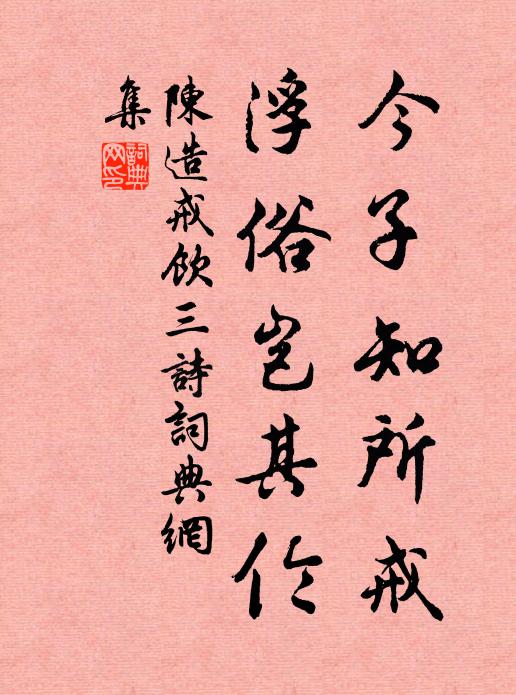 今子知所戒
浮俗岂其伦
陳造戒飲三詩詞典網
集
詞典網印